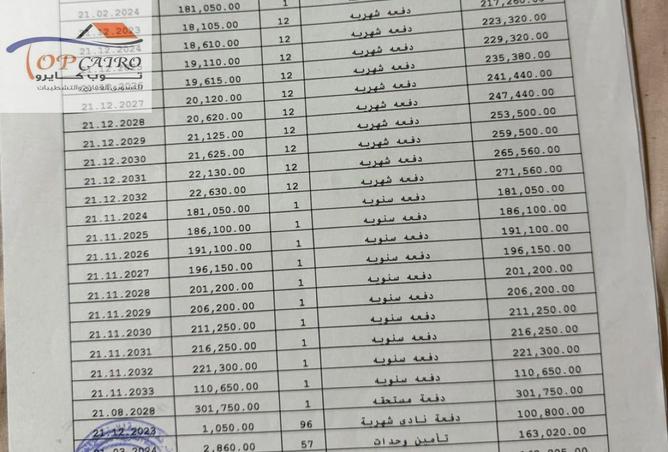 21.02.2024 181,050.00 1 217,260.00
18,105.00 12 دفعه شهريه 223,320.00
18,610.00 12 دفعه شهريه 229,320.00
19,110.00 12 دفعه شهريه 235,380.00
19,615.00 12 دفعه شهريه 241,440.00
21.12.2027 20,120.00 12 دفعه شهريه 247,440.00
21.12.2028 20,620.00 12 دفعه شهريه 253,500.00
21.12.2029 21,125.00 12 دفعه شهريه 259,500.00
21.12.2030 21,625.00 12 دفعه شهريه 265,560.00
21.12.2031 22,130.00 12 دفعه شهريه 271,560.00
21.12.2032 22,630.00 12 دفعه شهريه 181,050.00
21.11.2024 181,050.00 1 دفعه سنويه 186,100.00
21.11.2025 186,100.00 1 دفعه سنويه 191,100.00
21.11.2026 191,100.00 1 دفعه سنويه 196,150.00
21.11.2027 196,150.00 1 دفعه سنويه 201,200.00
21.11.2028 201,200.00 1 دفعه سنويه 206,200.00
21.11.2029 206,200.00 1 دفعه سنويه 211,250.00
21.11.2030 211,250.00 1 دفعه سنويه 216,250.00
21.11.2031 216,250.00 1 دفعه سنويه 221,300.00
21.11.2032 221,300.00 1 دفعه سنويه 110,650.00
21.11.2033 110,650.00 1 دفعه سنويه 301,750.00
21.08.2028 301,750.00 1 دفعة مستحقه 100,800.00
21.12.2023 1,050.00 96 دفعة نادى شهرية 163,020.00
21.03.2024 2,860.00 57 تأمين وحدات
TOP CAIRO
توب كايرو
للتسويق العقاري والتشطيبات